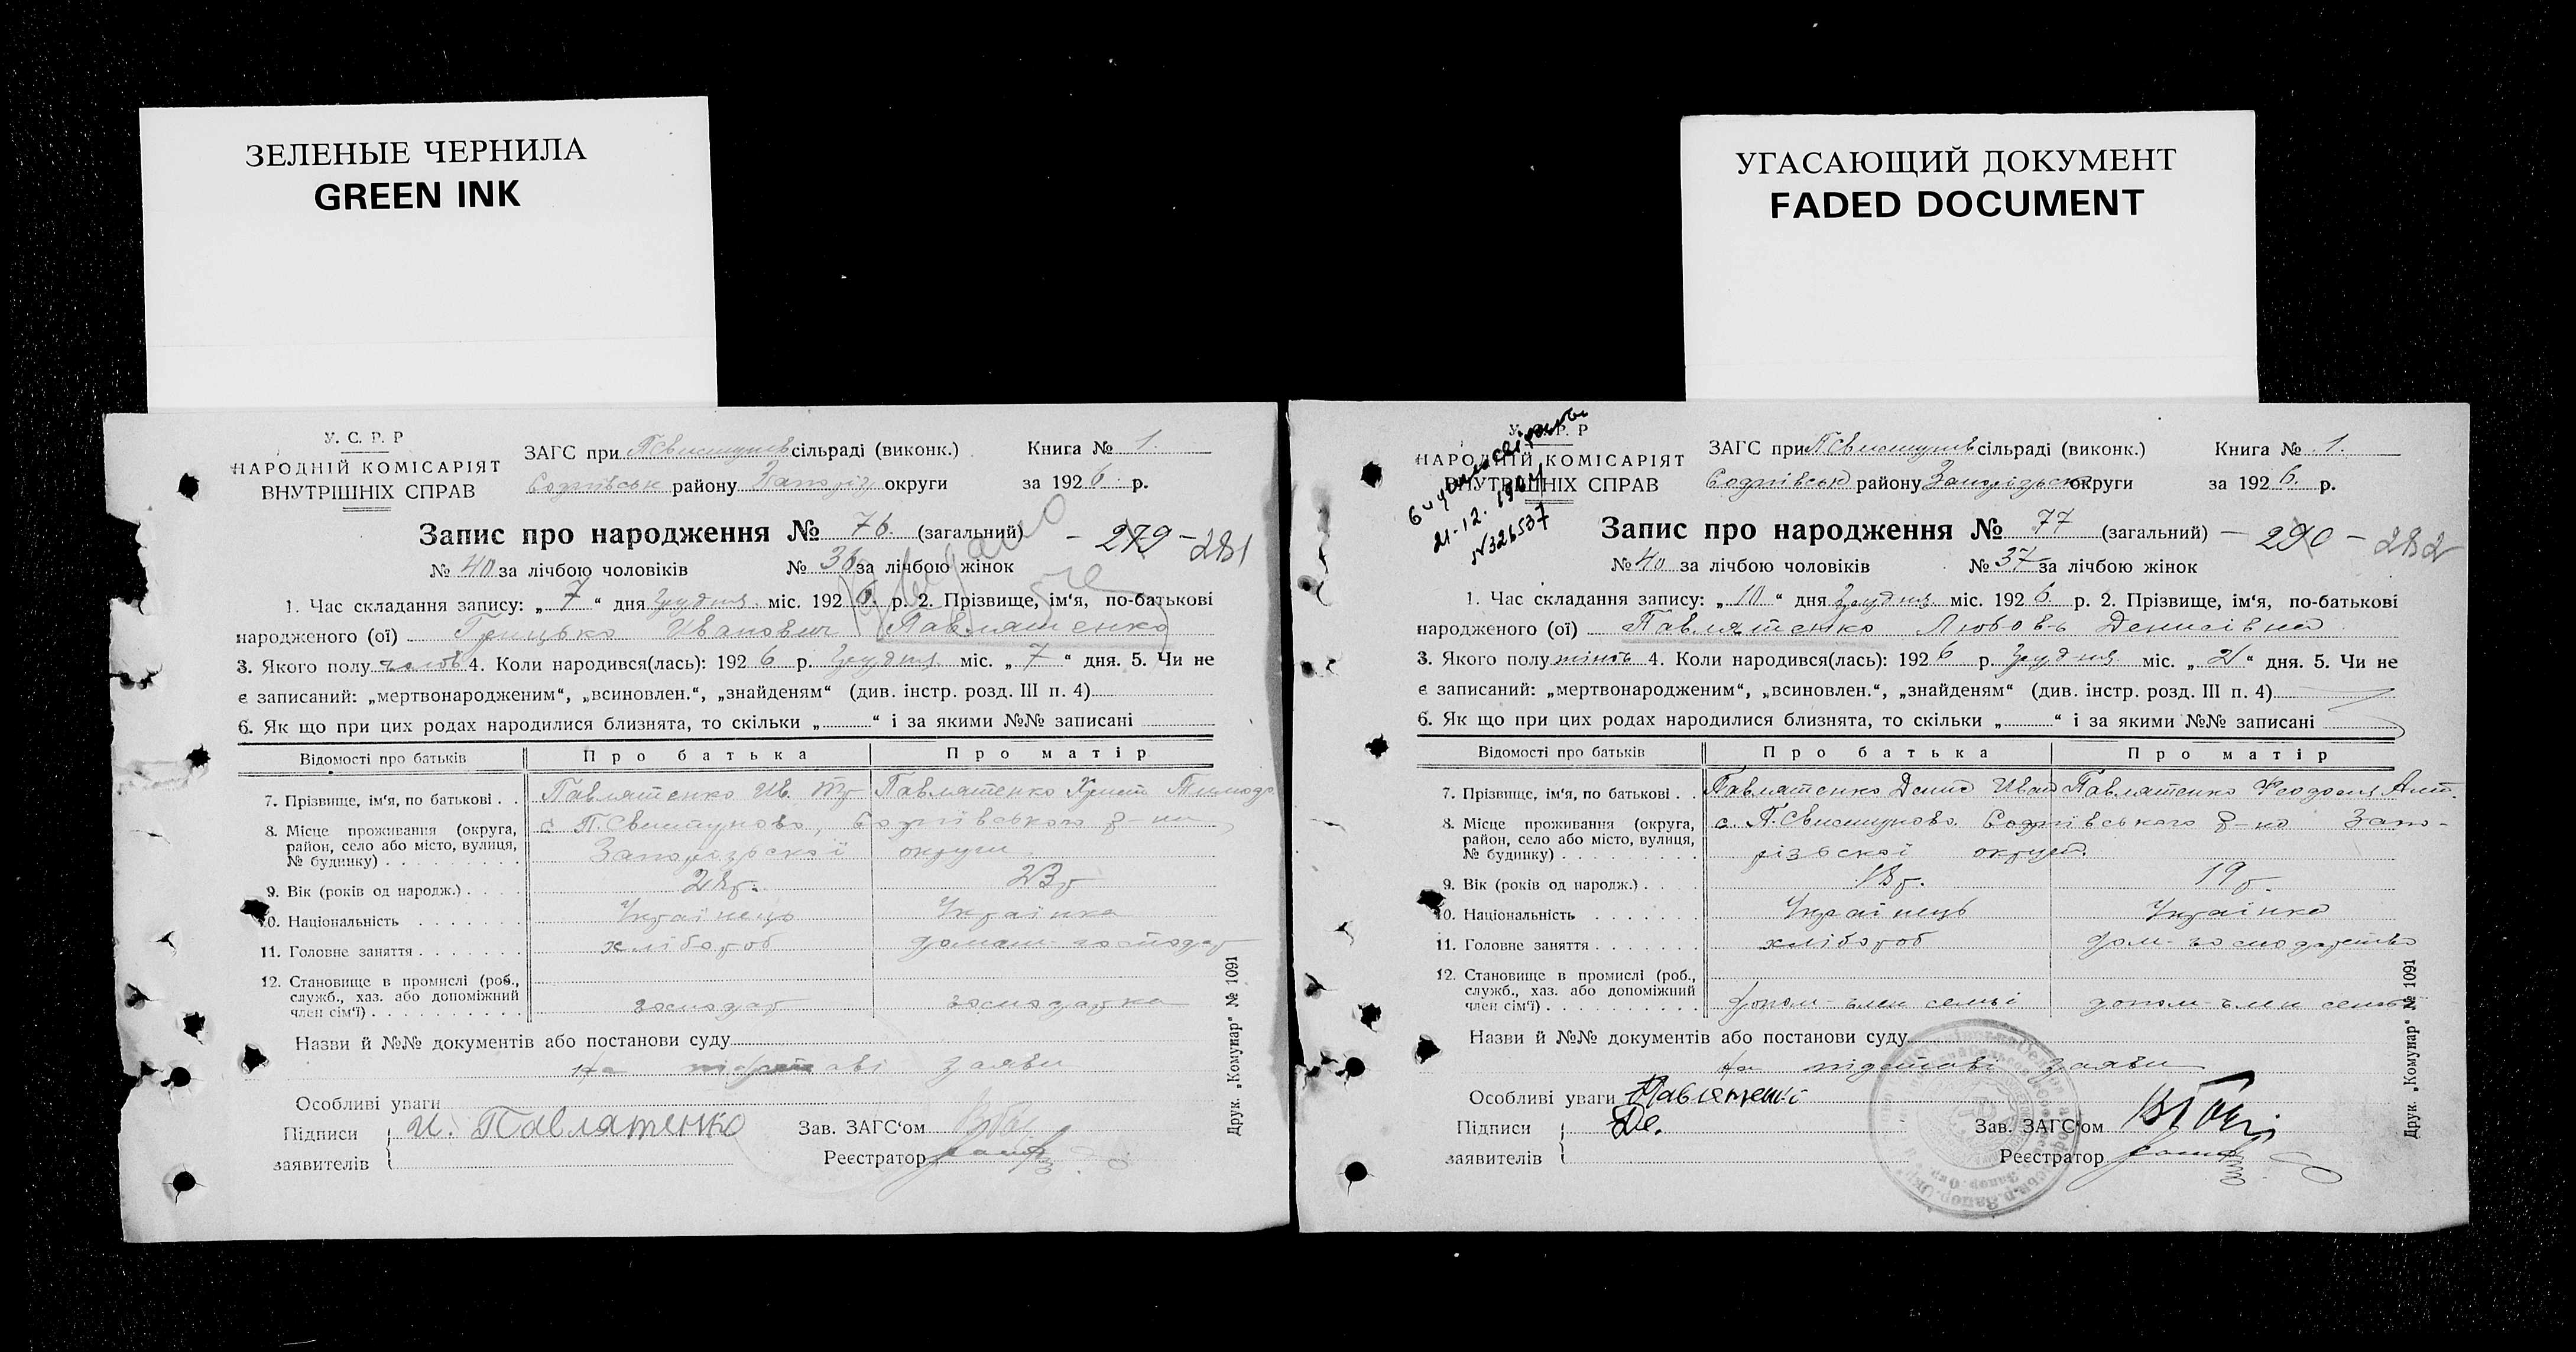 ЗЕЛЕНЫЕ ЧЕРНИЛА
GREEN INK
У. С. Р. Р
НАРОДНІЙ КОМІСАРІЯТ
ВНУТРІШНІХ СПРАВ
ЗАГС при П Свистунів сільраді (виконк.)
Книга № 1.
району Запоріз округи
за 1926 р.
Запис про народження № 76. (загальний) - 279 - 281
№ 40 за лічбою чоловіків № 36 за лічбою жінок
1. Час складання запису: „ 7 “ дня грудня міс. 1926. р. 2. Прізвище, ім‘я, по-батькові
народженого (ої) Грицько Иванович Павлятенко
3. Якого полу чолов 4. Коли народився(лась): 1926 р. грудня міс. „ 7 “ дня. 5. Чи не
є записаний: „мертвонародженим“, „всиновлен.“, „знайденям“ (див. інстр. розд. III п. 4)
6. Як що при цих родах народилися близнята, то скільки „ “ і за якими №№ записані
Відомості про батьків Про батька Про матір
7. Прізвище, ім‘я, по батькові . . Павлятенко Ив. Павлятенко Христ Тимофе
8. Місце проживання (округа, район, село або місто, вулиця, № будинку) с П. Свистуново, р-на
Запорізьскої округи
9. Вік (років од народж.) 28 р. 23 р
10. Національність Українець Українка
11. Головне заняття хлібороб домаш господар
12. Становище в промислі (роб., служб., хаз. або допоміжний член сім‘ї) господар господарка
Назви й №№ документів або постанови суду
На підставі заяви
Особливі уваги
Підписи заявителів И. Павлятенко
Зав. ЗАГС‘ом
Реєстратор
Друк. „Комунар“ № 1091
УГАСАЮЩИЙ ДОКУМЕНТ
FADED DOCUMENT
У. С. Р. Р
НАРОДНІЙ КОМІСАРІЯТ
ВНУТРІШНІХ СПРАВ
21-12. 19
№326537
ЗАГС при П Свистунів сільраді (виконк.)
Книга № 1.
району Запорізьск округи
за 1926. р.
Запис про народження № 77 (загальний) - 290 - 282
№ 40 за лічбою чоловіків № 37 за лічбою жінок
1. Час складання запису: „ 10 “ дня грудня міс. 1926. р. 2. Прізвище, ім‘я, по-батькові
народженого (ої) Павлятенко Любовь Денисівна
3. Якого полу жіноч 4. Коли народився(лась): 1926 р. грудня міс. „ “ дня. 5. Чи не
є записаний: „мертвонародженим“, „всиновлен.“, „знайденям“ (див. інстр. розд. III п. 4)
6. Як що при цих родах народилися близнята, то скільки „ “ і за якими №№ записані
Відомості про батьків Про батька Про матір
7. Прізвище, ім‘я, по батькові . . Павлятенко Денис Иван Павлятенко Феодосия Ант.
8. Місце проживання (округа, район, село або місто, вулиця, № будинку) с. П. Свистуново. р-на Запо-
різьскої округи.
9. Вік (років од народж.) 18 р. 19 р.
10. Національність Українець Українка
11. Головне заняття хлібороб дом-господарство
12. Становище в промислі (роб., служб., хаз. або допоміжний член сім‘ї) допом-член семьї допом-член
Назви й №№ документів або постанови суду
На підставі заяви
Особливі уваги
Підписи заявителів Павлятенко Де.
Зав. ЗАГС‘ом
Реєстратор
Друк. „Комунар“ № 1091